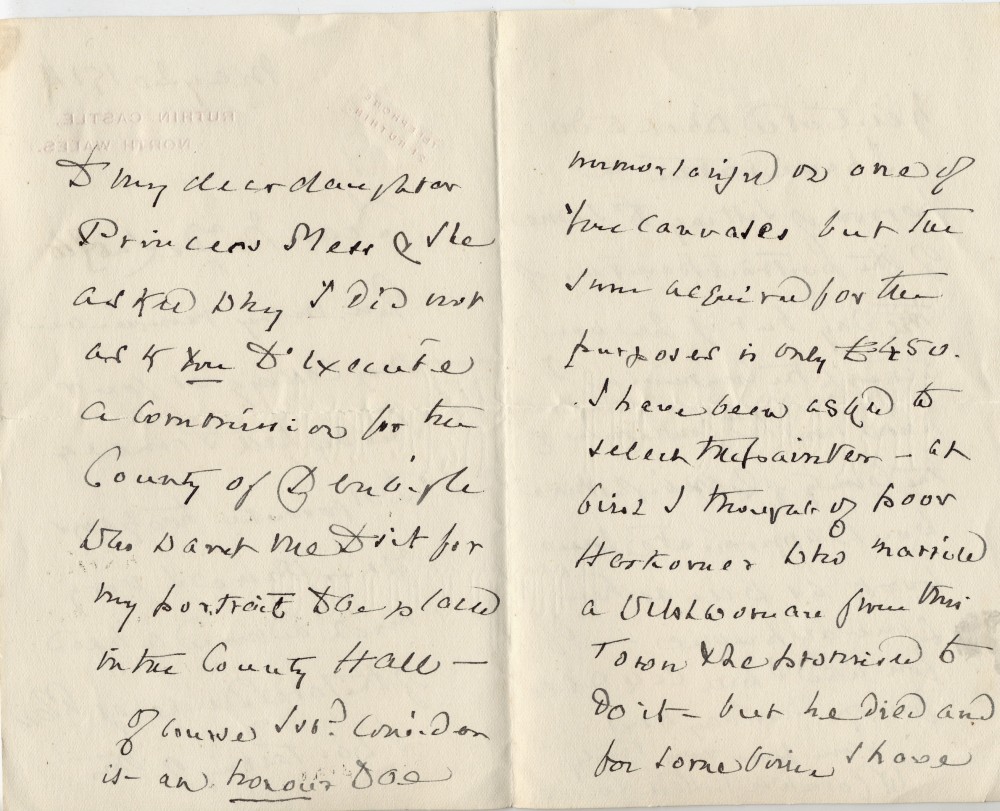 To my dear daughter
Princess Pless & she
asked why I did not
ask you to execute
a commission for the
County of Denbigh
who want me to sit for
my portrait to be placed
in the County Hall —
Of course I shd. consider
it an honour to be
immortalized on one of
your canvases but the
sum acquired for the
purposes is only £450.
I have been asked to
select the painter — at
first I thought of poor
Herkomer who married
a Welshwoman from this
Town & he promised to
do it — but he died and
for some time I have
RUTHIN CASTLE,
NORTH WALES.